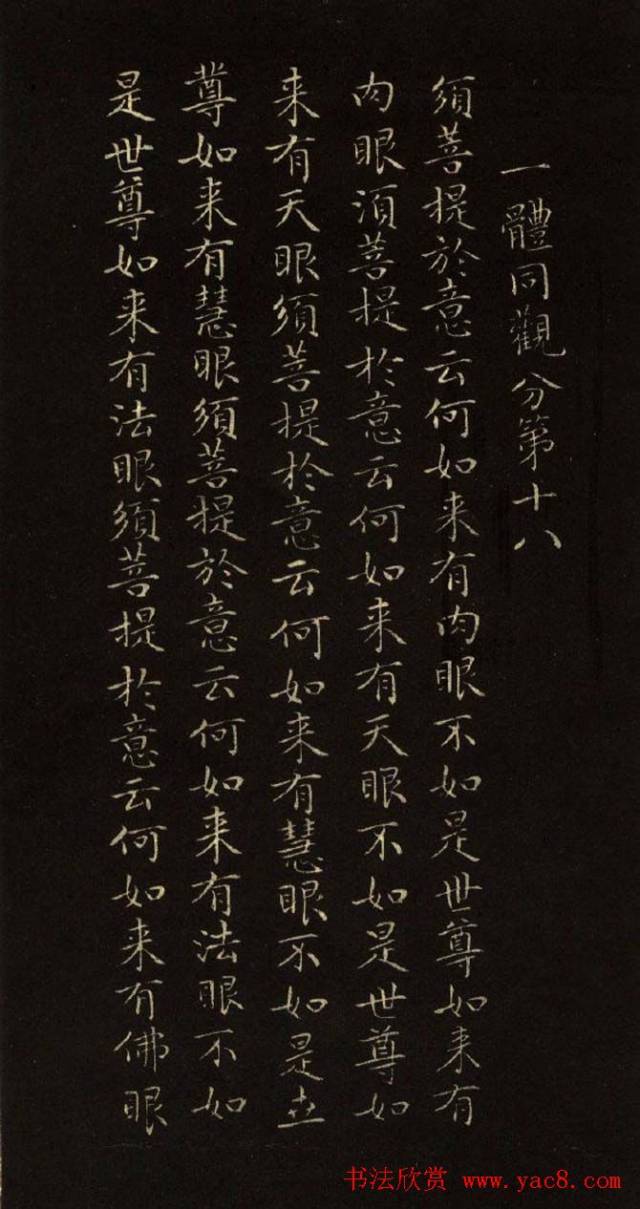 一體同觀分第十八
須菩提於意云何如来有肉眼不如是世尊如来有
肉眼須菩提於意云何如来有天眼不如是世尊如
来有天眼須菩提於意云何如来有慧眼不如是世
尊如来有慧眼須菩提於意云何如来有法眼不如
是世尊如来有法眼須菩提於意云何如来有佛眼
书法欣赏 www.yac8.com